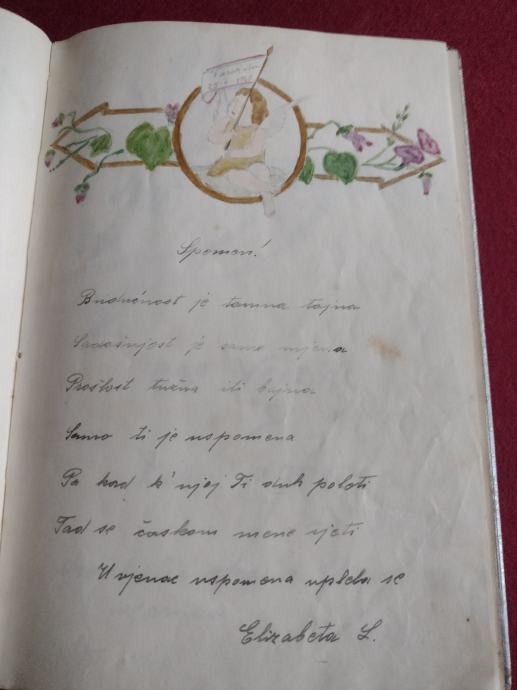 Spomen!
Budućnost je tamna tajna
Sadašnjost je samo mjena
Prošlost tužna ili bajna
Samo ti je uspomena
Pa kad k' njoj Ti duh poleti
Tad se časkom mene sjeti
U vjenac uspomena upleła se
Elizabeta L.